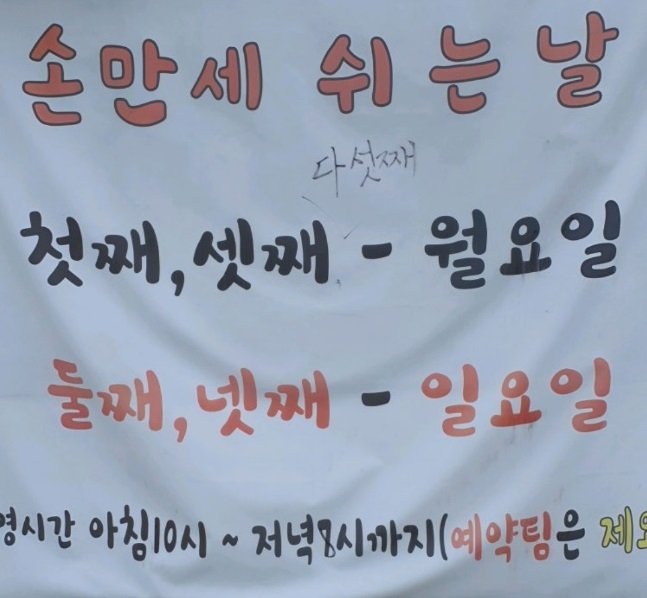 손만세 쉬는 날
다섯째
첫째, 셋째 - 월요일
둘째, 넷째 - 일요일
영시간 아침10시 ~ 저녁8시까지(예약팀은 제외